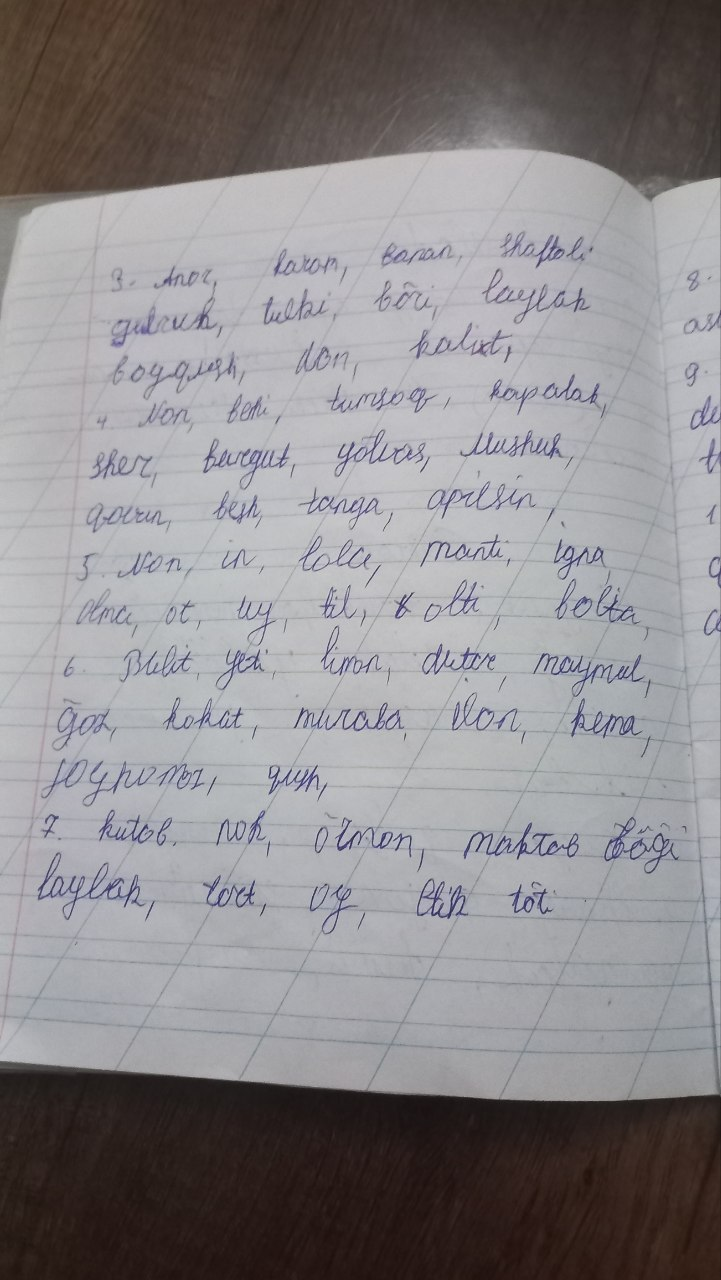 3. Anor, karam, banan, shaftoli
gulruk, tulki, bõri, laylak
boyqush, don, kalit,
4 Non, behi, tumsoq, kapalak,
sher, burgut, yõlvas, Mushuk,
qovun, besh, tanga, apilsin,
5. Non, in, lola, manti, igna,
Olma, ot, uy, til, olti, bolta,
6. Bulut, yetti, limon, dutor, maymul,
ğoz, kokat, muraba, Ilon, kema,
qush,
7. kitob. nok, õrmon, maktab
laylak, tort, oy, Etik tõti
8.
9.